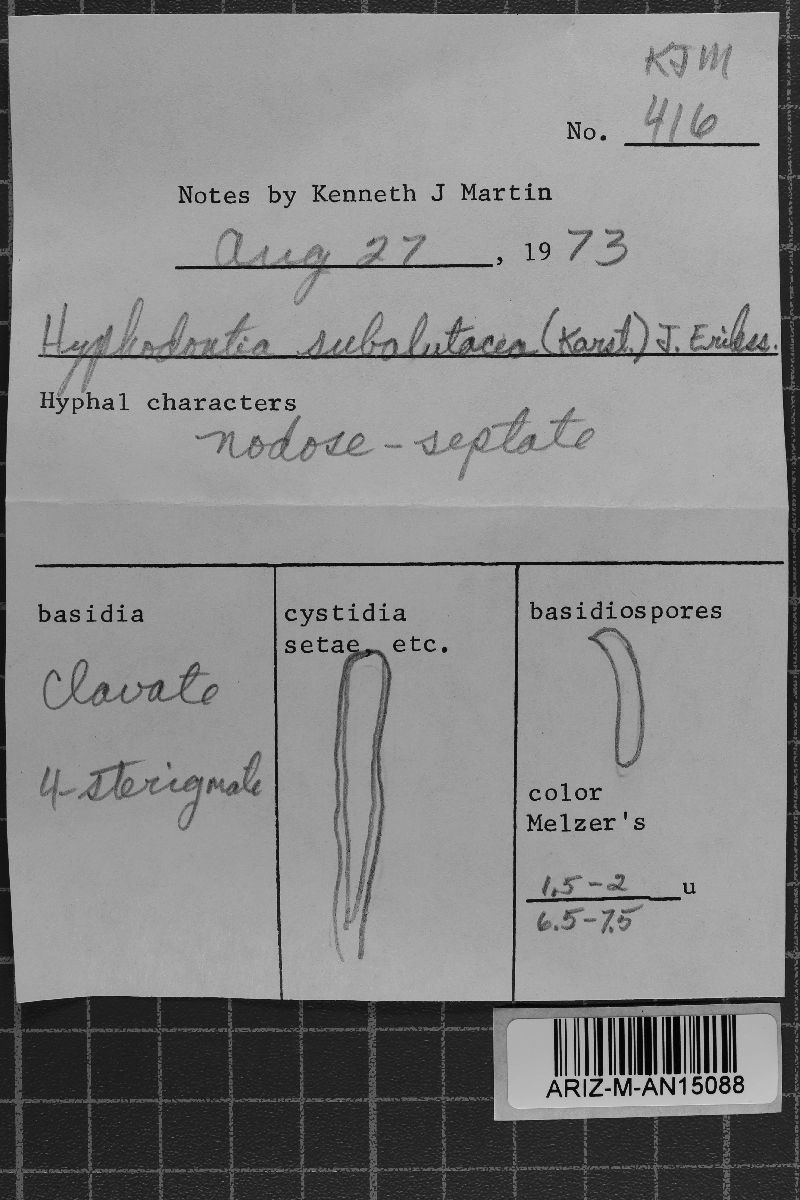 KJM
No. 416
Notes by Kenneth J Martin
Aug 27, 1973
Hyphodontia subalutacea (Karst.) J. Erikss.
Hyphal characters
nodose-septate
basidia
Clavate
4-sterigmate
cystidia
setae, etc.
basidiospores
color
Melzer's
1.5-2 u
6.5-7.5
ARIZ-M-AN15088